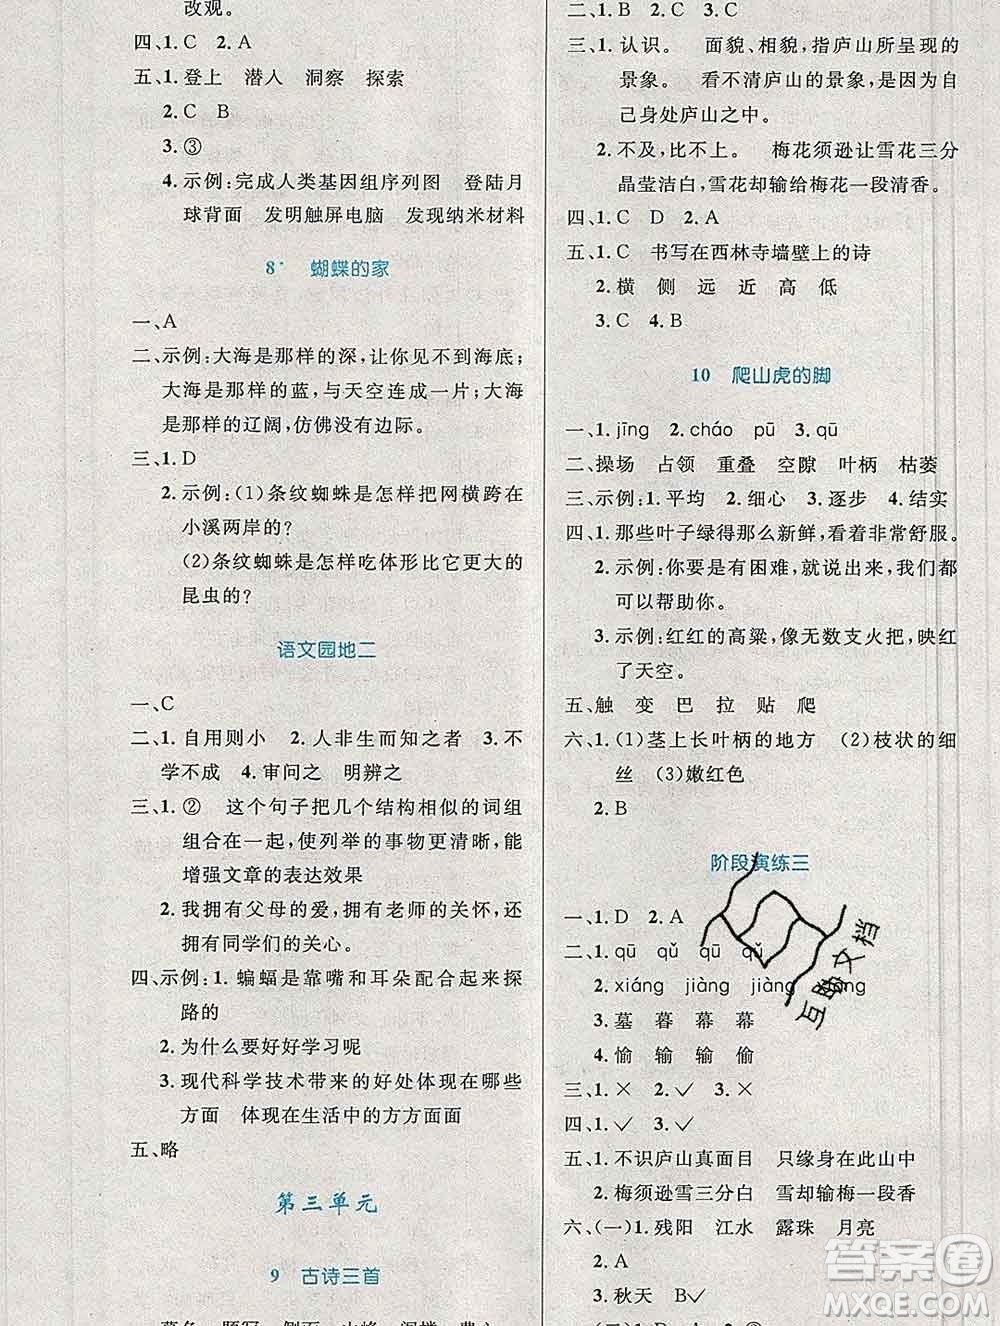 改观。
四、1. C　2. A
五、1. 登上　潜入　洞察　探索
2. C　B
3. ③
4. 示例:完成人类基因组序列图　登陆月
球背面　发明触屏电脑　发现纳米材料
8* 蝴蝶的家
一、A
二、示例:大海是那样的深,让你见不到海底;
大海是那样的蓝,与天空连成一片;大海
是那样的辽阔,仿佛没有边际。
三、1. D
2. 示例:(1)条纹蜘蛛是怎样把网横跨在
小溪两岸的?
(2)条纹蜘蛛是怎样吃体形比它更大的
昆虫的?
语文园地二
一、C
二、1. 自用则小　2. 人非生而知之者　3. 不
学不成　4. 审问之　明辨之
三、1. ②　这个句子把几个结构相似的词组
组合在一起,使列举的事物更清晰,能
增强文章的表达效果
2. 我拥有父母的爱,拥有老师的关怀,
拥有同学们的关心。
四、示例:1. 蝙蝠是靠嘴和耳朵配合起来探
路的
2. 为什么要好好学习呢
3. 现代科学技术带来的好处体现在哪些
方面　体现在生活中的方方面面
五、略
第三单元
9 古诗三首
二、1. B　2. C　3. C
三、1. 认识。　面貌、相貌,指庐山所呈现的
景象。　看不清庐山的景象,是因为自
己身处庐山之中。
2. 不及,比不上。　梅花须逊让雪花三分
晶莹洁白,雪花却输给梅花一段清香。
四、1. C　D　2. A
五、1. C　书写在西林寺墙壁上的诗
2. 横　侧　远　近　高　低
3. C　4. B
10 爬山虎的脚
一、1. jīng　2. cháo　pū　3. qū
二、操场　占领　重叠　空隙　叶柄　枯萎
三、示例:1. 平均　2. 细心　3. 逐步　4. 结实
四、1. 那些叶子绿得那么新鲜,看着非常舒服。
2. 示例:你要是有困难,就说出来,我们都
可以帮助你。
3. 示例:红红的高粱,像无数支火把,映红
了天空。
五、触　变　巴　拉　贴　爬
六、1. (1)茎上长叶柄的地方　(2)枝状的细
丝　(3)嫩红色
2. B
阶段演练三
一、1. D　2. A
二、1. qū　qǔ　qū　qǔ
2. xiáng　jiàng　jiàng
3. 墓　暮　幕　幕
4. 愉　输　输　偷
三、1. ×　2. ✓　3. ✓
四、1. ✓　2. ✓　3. ✓
五、1. 不识庐山真面目　只缘身在此山中
2. 梅须逊雪三分白　雪却输梅一段香
六、(一)1. 残阳　江水　露珠　月亮
2. A
3. 秋天　B✓
互助文档
答案圈
MXQE.COM